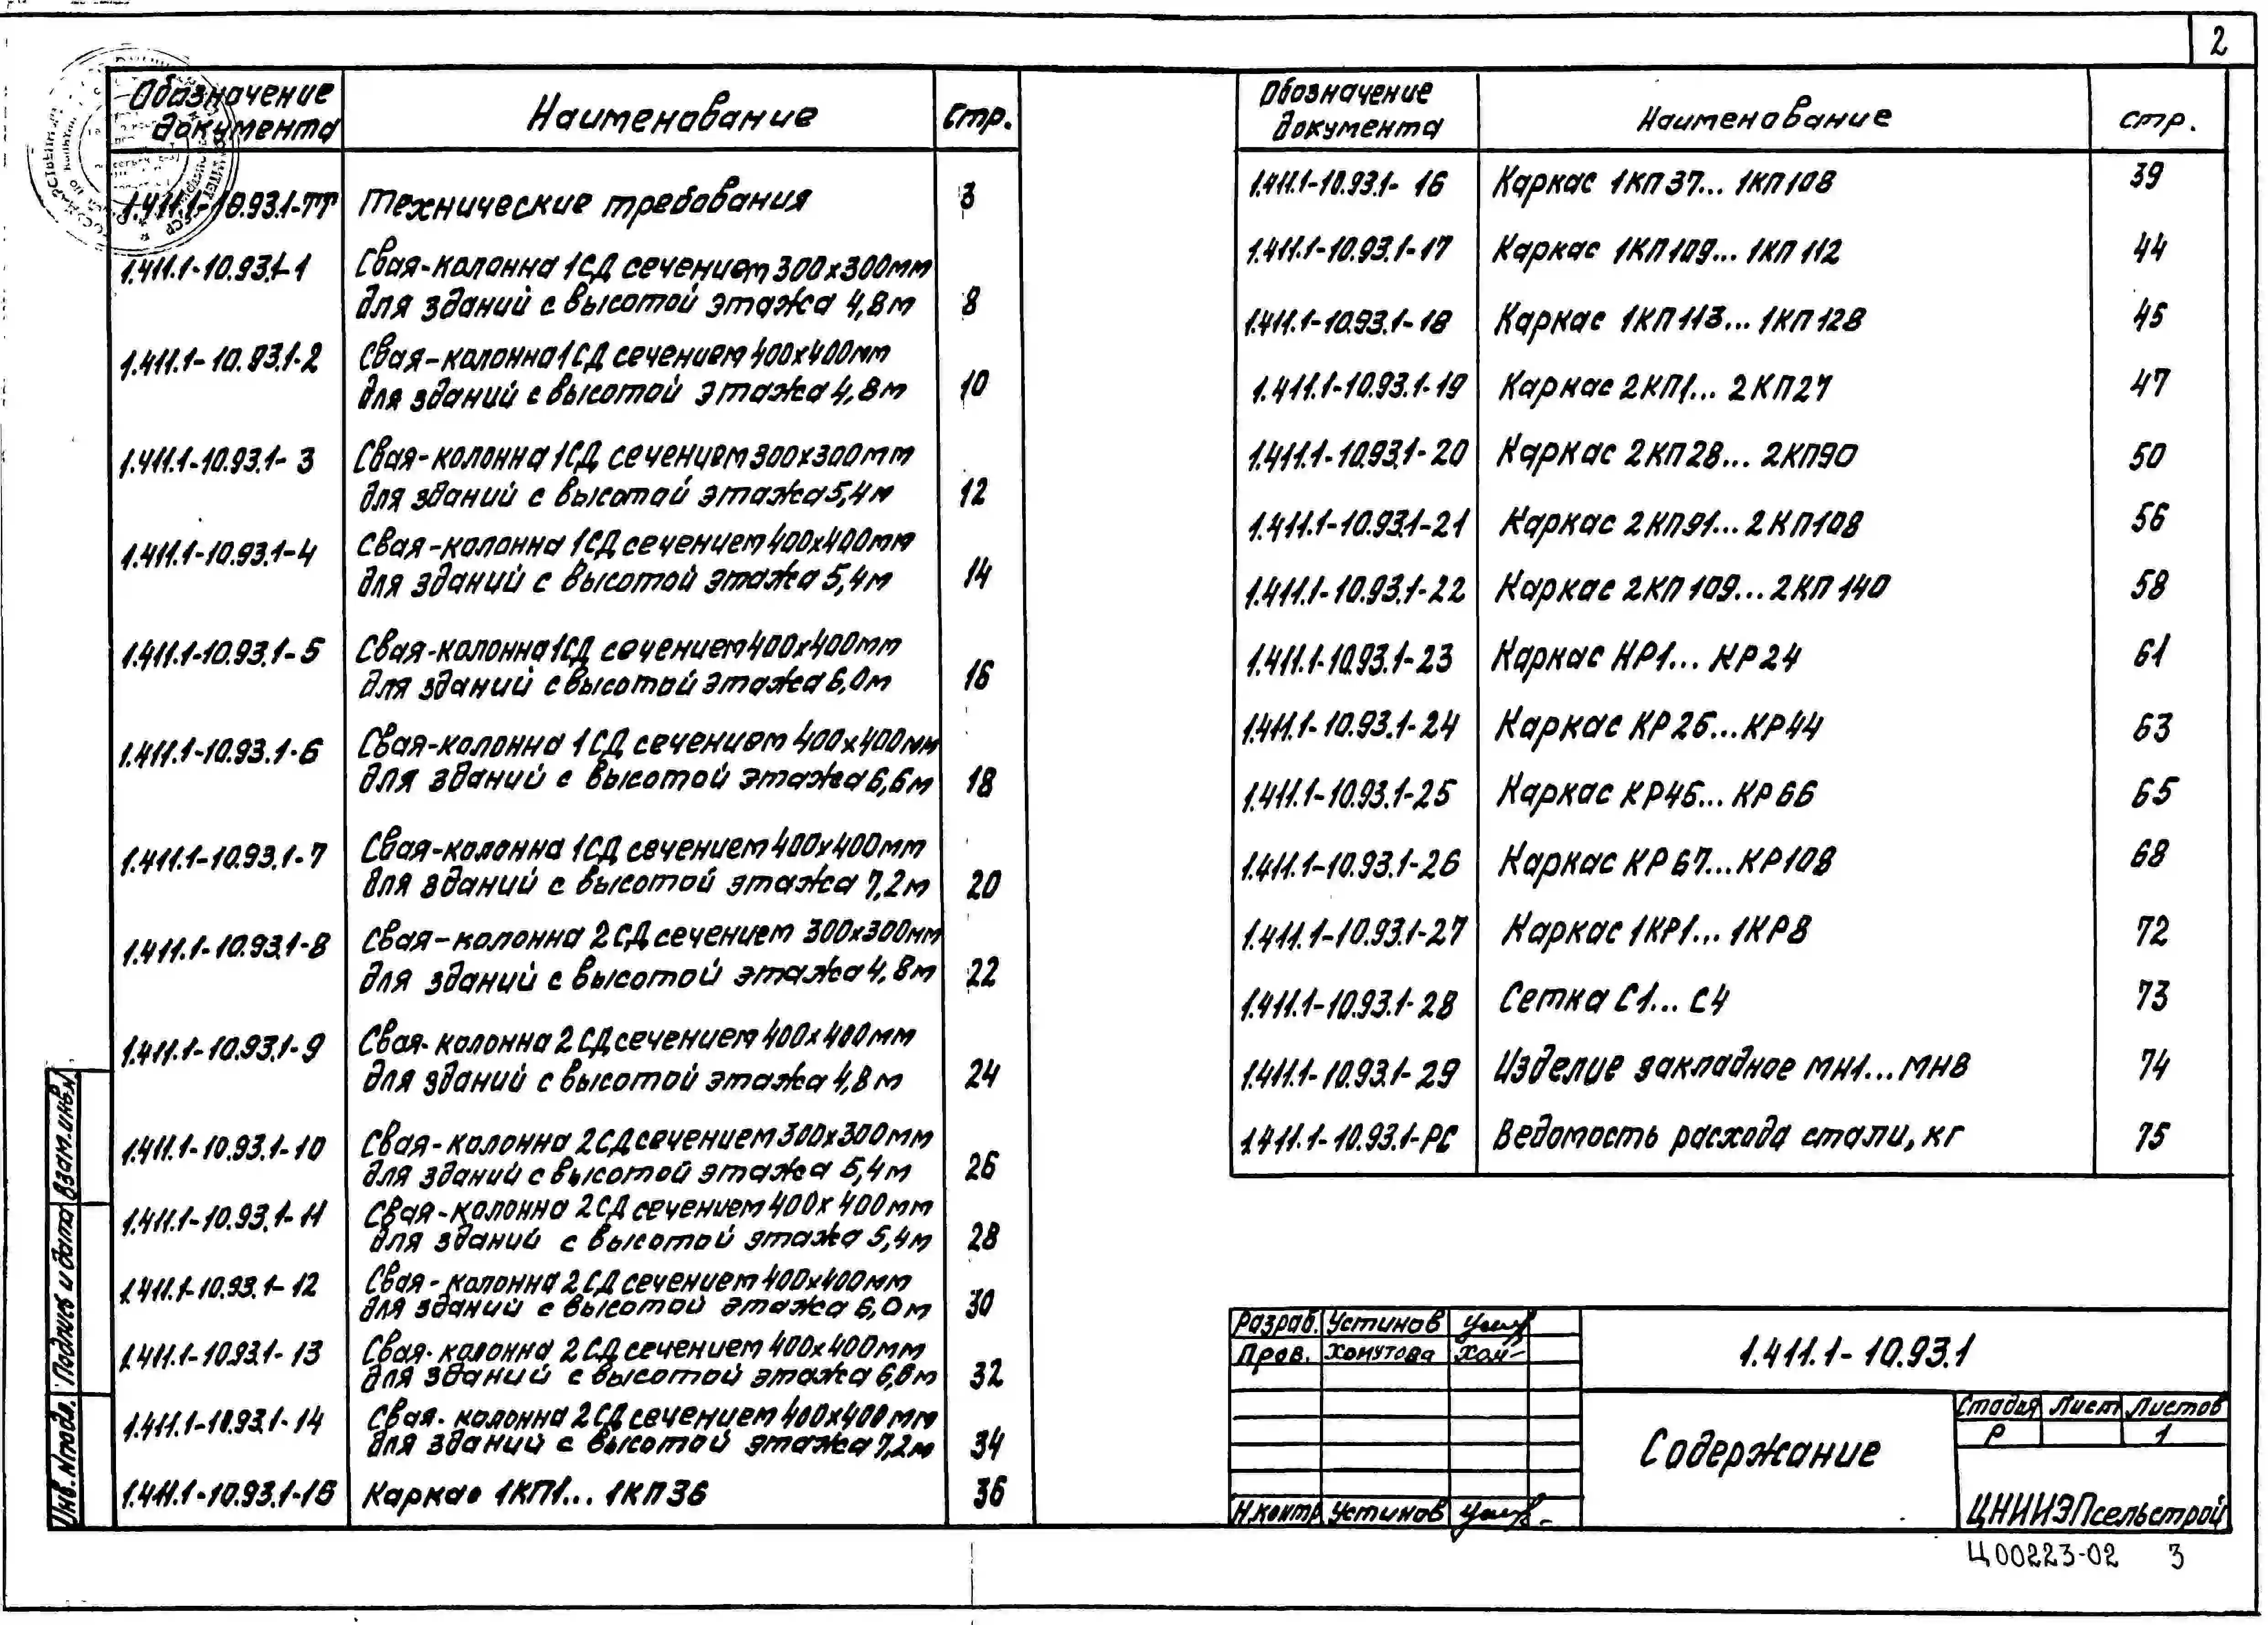 2
Обозначение документа Наименование Стр.
1.411.1-10.93.1-ТТ Технические требования 3
1.411.1-10.93.1-1 Свая-колонна 1СД сечением 300х300мм
для зданий с высотой этажа 4,8м 8
1.411.1-10.93.1-2 Свая-колонна 1СД сечением 400х400мм
для зданий с высотой этажа 4,8м 10
1.411.1-10.93.1-3 Свая-колонна 1СД сечением 300х300мм
для зданий с высотой этажа 5,4м 12
1.411.1-10.93.1-4 Свая-колонна 1СД сечением 400х400мм
для зданий с высотой этажа 5,4м 14
1.411.1-10.93.1-5 Свая-колонна 1СД сечением 400х400мм
для зданий с высотой этажа 6,0м 16
1.411.1-10.93.1-6 Свая-колонна 1СД сечением 400х400мм
для зданий с высотой этажа 6,6м 18
1.411.1-10.93.1-7 Свая-колонна 1СД сечением 400х400мм
для зданий с высотой этажа 7,2м 20
1.411.1-10.93.1-8 Свая-колонна 2СД сечением 300х300мм
для зданий с высотой этажа 4,8м 22
1.411.1-10.93.1-9 Свая-колонна 2СД сечением 400х400мм
для зданий с высотой этажа 4,8м 24
1.411.1-10.93.1-10 Свая-колонна 2СД сечением 300х300мм
для зданий с высотой этажа 5,4м 26
1.411.1-10.93.1-11 Свая-колонна 2СД сечением 400х400мм
для зданий с высотой этажа 5,4м 28
1.411.1-10.93.1-12 Свая-колонна 2СД сечением 400х400мм
для зданий с высотой этажа 6,0м 30
1.411.1-10.93.1-13 Свая-колонна 2СД сечением 400х400мм
для зданий с высотой этажа 6,6м 32
1.411.1-10.93.1-14 Свая-колонна 2СД сечением 400х400мм
для зданий с высотой этажа 7,2м 34
1.411.1-10.93.1-15 Каркас 1КП1... 1КП36 36
Обозначение документа Наименование стр.
1.411.1-10.93.1-16 Каркас 1КП37... 1КП108 39
1.411.1-10.93.1-17 Каркас 1КП109... 1КП112 44
1.411.1-10.93.1-18 Каркас 1КП113... 1КП128 45
1.411.1-10.93.1-19 Каркас 2КП1... 2КП27 47
1.411.1-10.93.1-20 Каркас 2КП28... 2КП90 50
1.411.1-10.93.1-21 Каркас 2КП91... 2КП108 56
1.411.1-10.93.1-22 Каркас 2КП109... 2КП140 58
1.411.1-10.93.1-23 Каркас КР1... КР24 61
1.411.1-10.93.1-24 Каркас КР26...КР44 63
1.411.1-10.93.1-25 Каркас КР45... КР66 65
1.411.1-10.93.1-26 Каркас КР67...КР108 68
1.411.1-10.93.1-27 Каркас 1КР1... 1КР8 72
1.411.1-10.93.1-28 Сетка С1... С4 73
1.411.1-10.93.1-29 Изделие закладное МН1...МН8 74
1.411.1-10.93.1-РС Ведомость расхода стали, кг 75
Взам.инв.№
Подпись и дата
Инв.№подл.
Разраб. Устинов
Пров. Хомутова
Н.контр Устинов
1.411.1-10.93.1
Содержание
Стадия Лист Листов
Р 1
ЦНИИЭПсельстрой
Ц00223-02 3